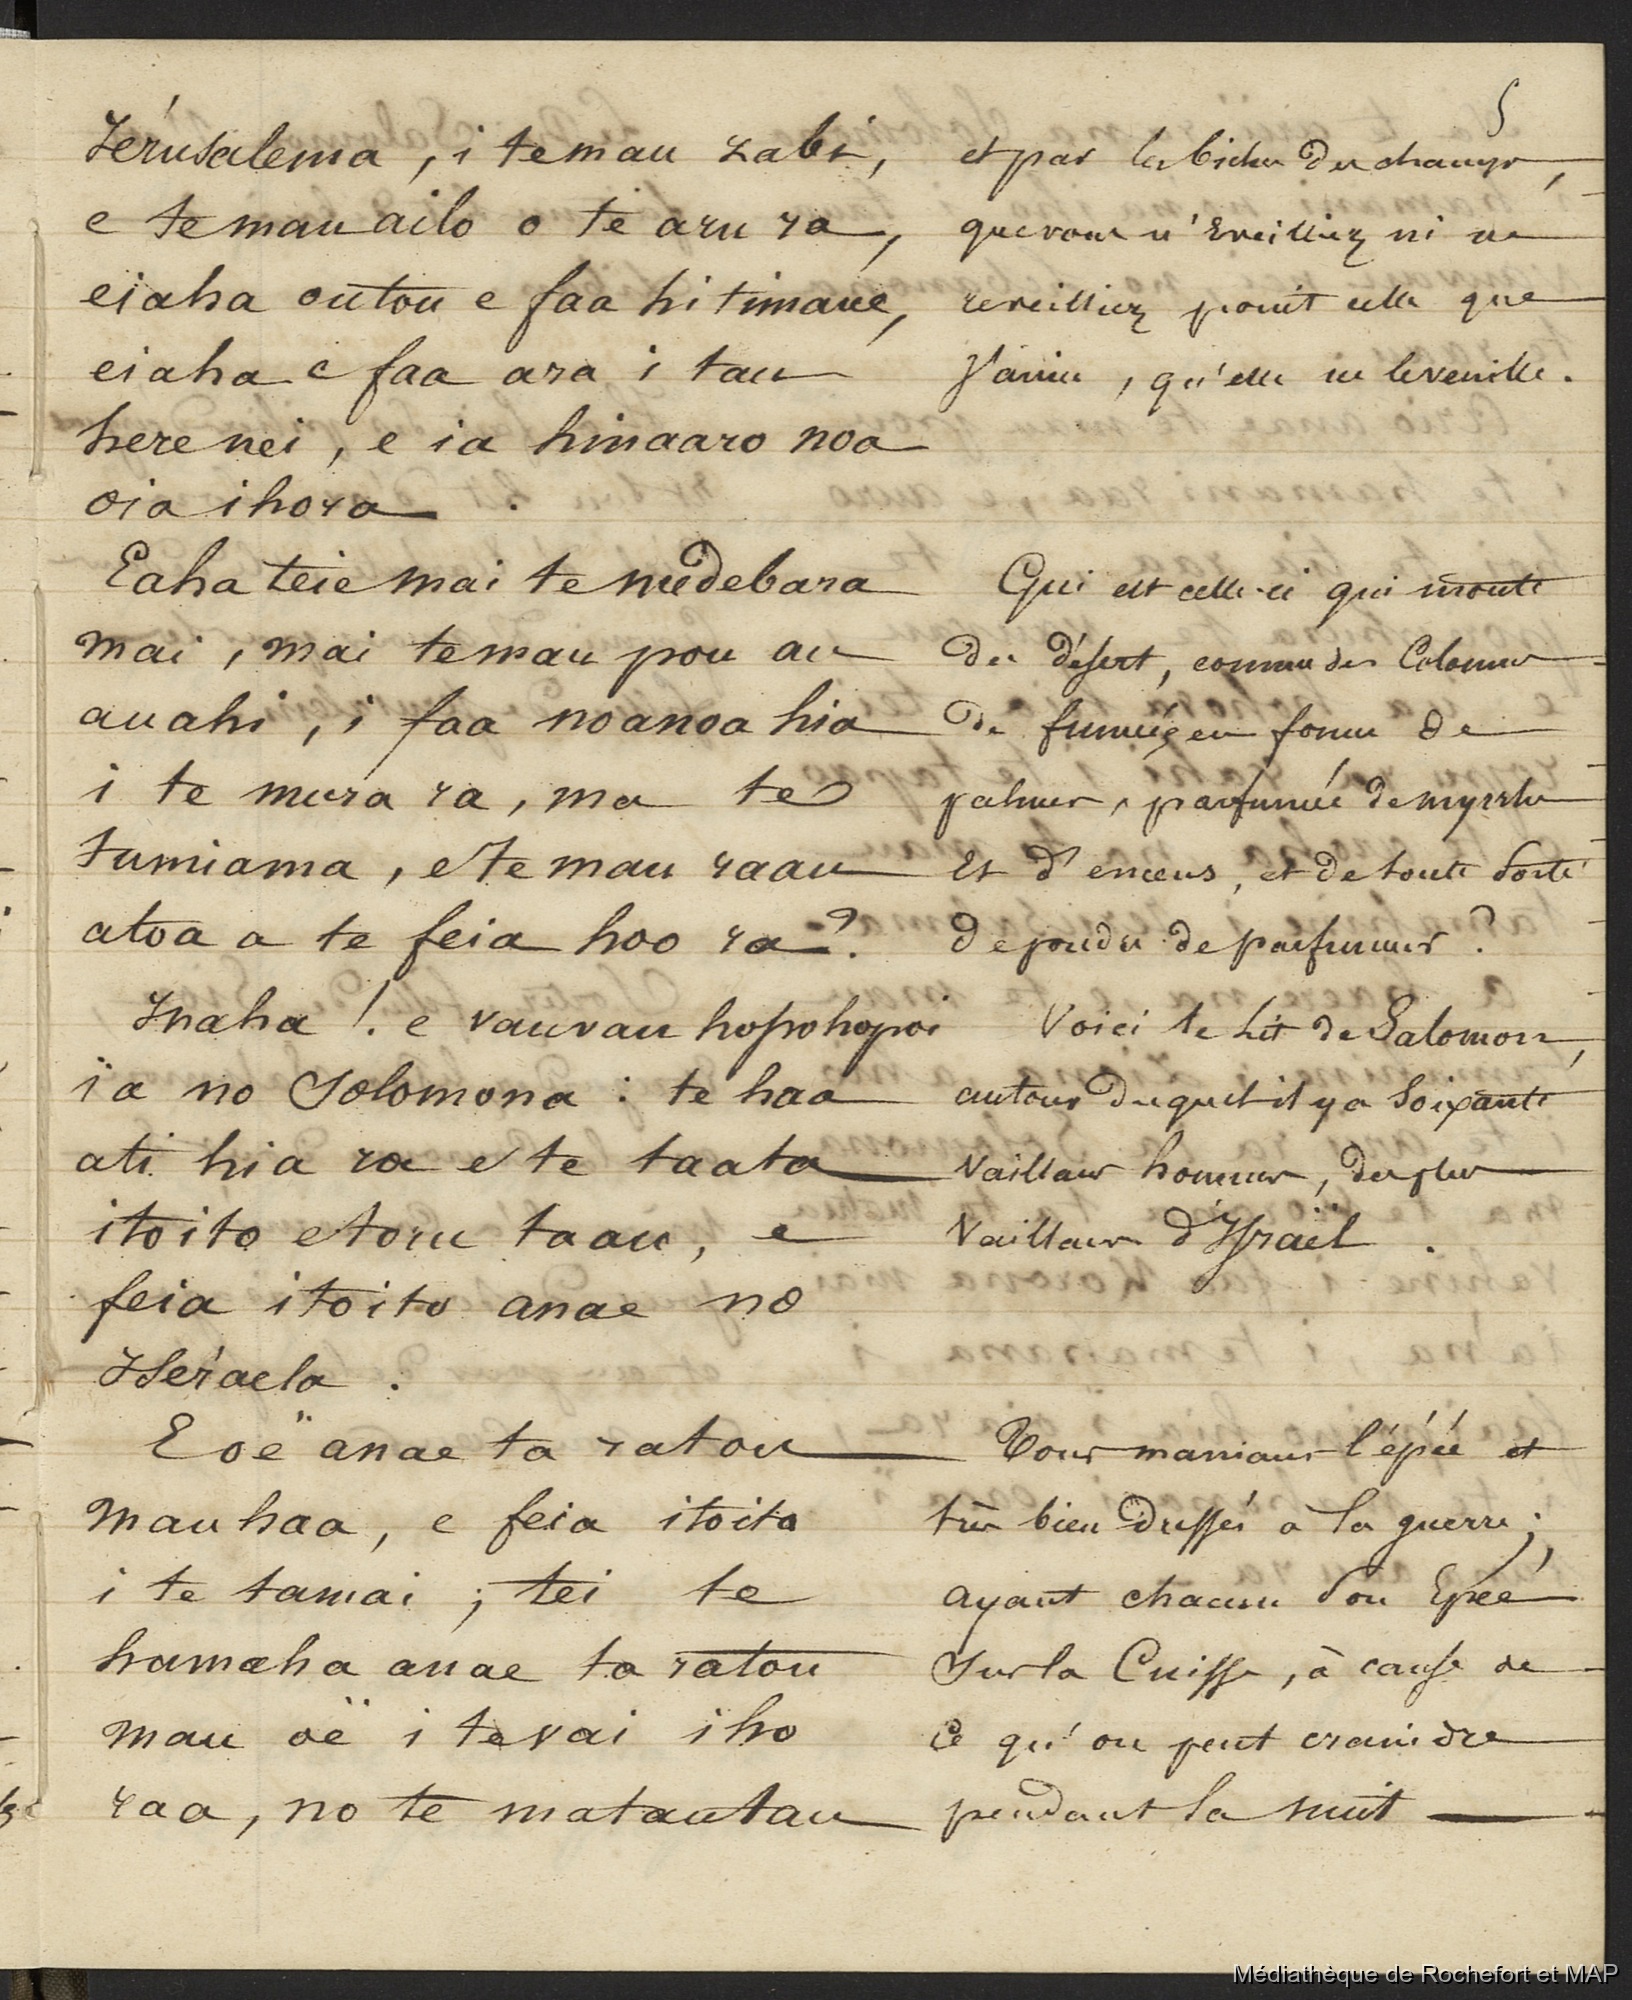 5
Iérusalema, i te mau zabi,
e te mau ailo o te aru ra,
eiaha outou e faa hitimaue,
eiaha e faa ara i tau
here nei, e ia hinaaro noa
oia ihora.
Eaha teie mai te medebara
mai, mai te mau pou au
auahi, i faa noanoa hia
i te mura ra, ma te
tumiama, e te mau raau
atoa a te feia hoo ra?.
Inaha!. e vauvau hopohopoi
ïa no Solomona : te haa
ati hia ra e te taata
itoito e toru taau, e
feia itoito anae no
Iséraela.
E oë anae ta ratou
mau haa, e feia itoito
i te tamai ; tei te
humaha anae ta ratou
mau oë i te vai iho
raa, no te matautau
et par les biches des champs,
que vous n'éveilliez ni ne
reveilliez point celle que
j'aime, qu'elle ne le veuille.
Qui est celle-ci qui monte
du désert, comme des Colonnes
de fumée, en forme de
palmes, parfumée de myrrhe
et d'encens, et de toute sorte
de poudre de parfumeur?
Voici le lit de Salomon,
autour duquel il y a soixante
vaillans hommes, des plus
vaillans d'Israël.
Tous manians l'épée et
très bien dressés à la guerre;
ayant chacun son épée
sur la Cuisse, à cause de
ce qu'on peut craindre
pendant la nuit
Médiathèque de Rochefort et MAP